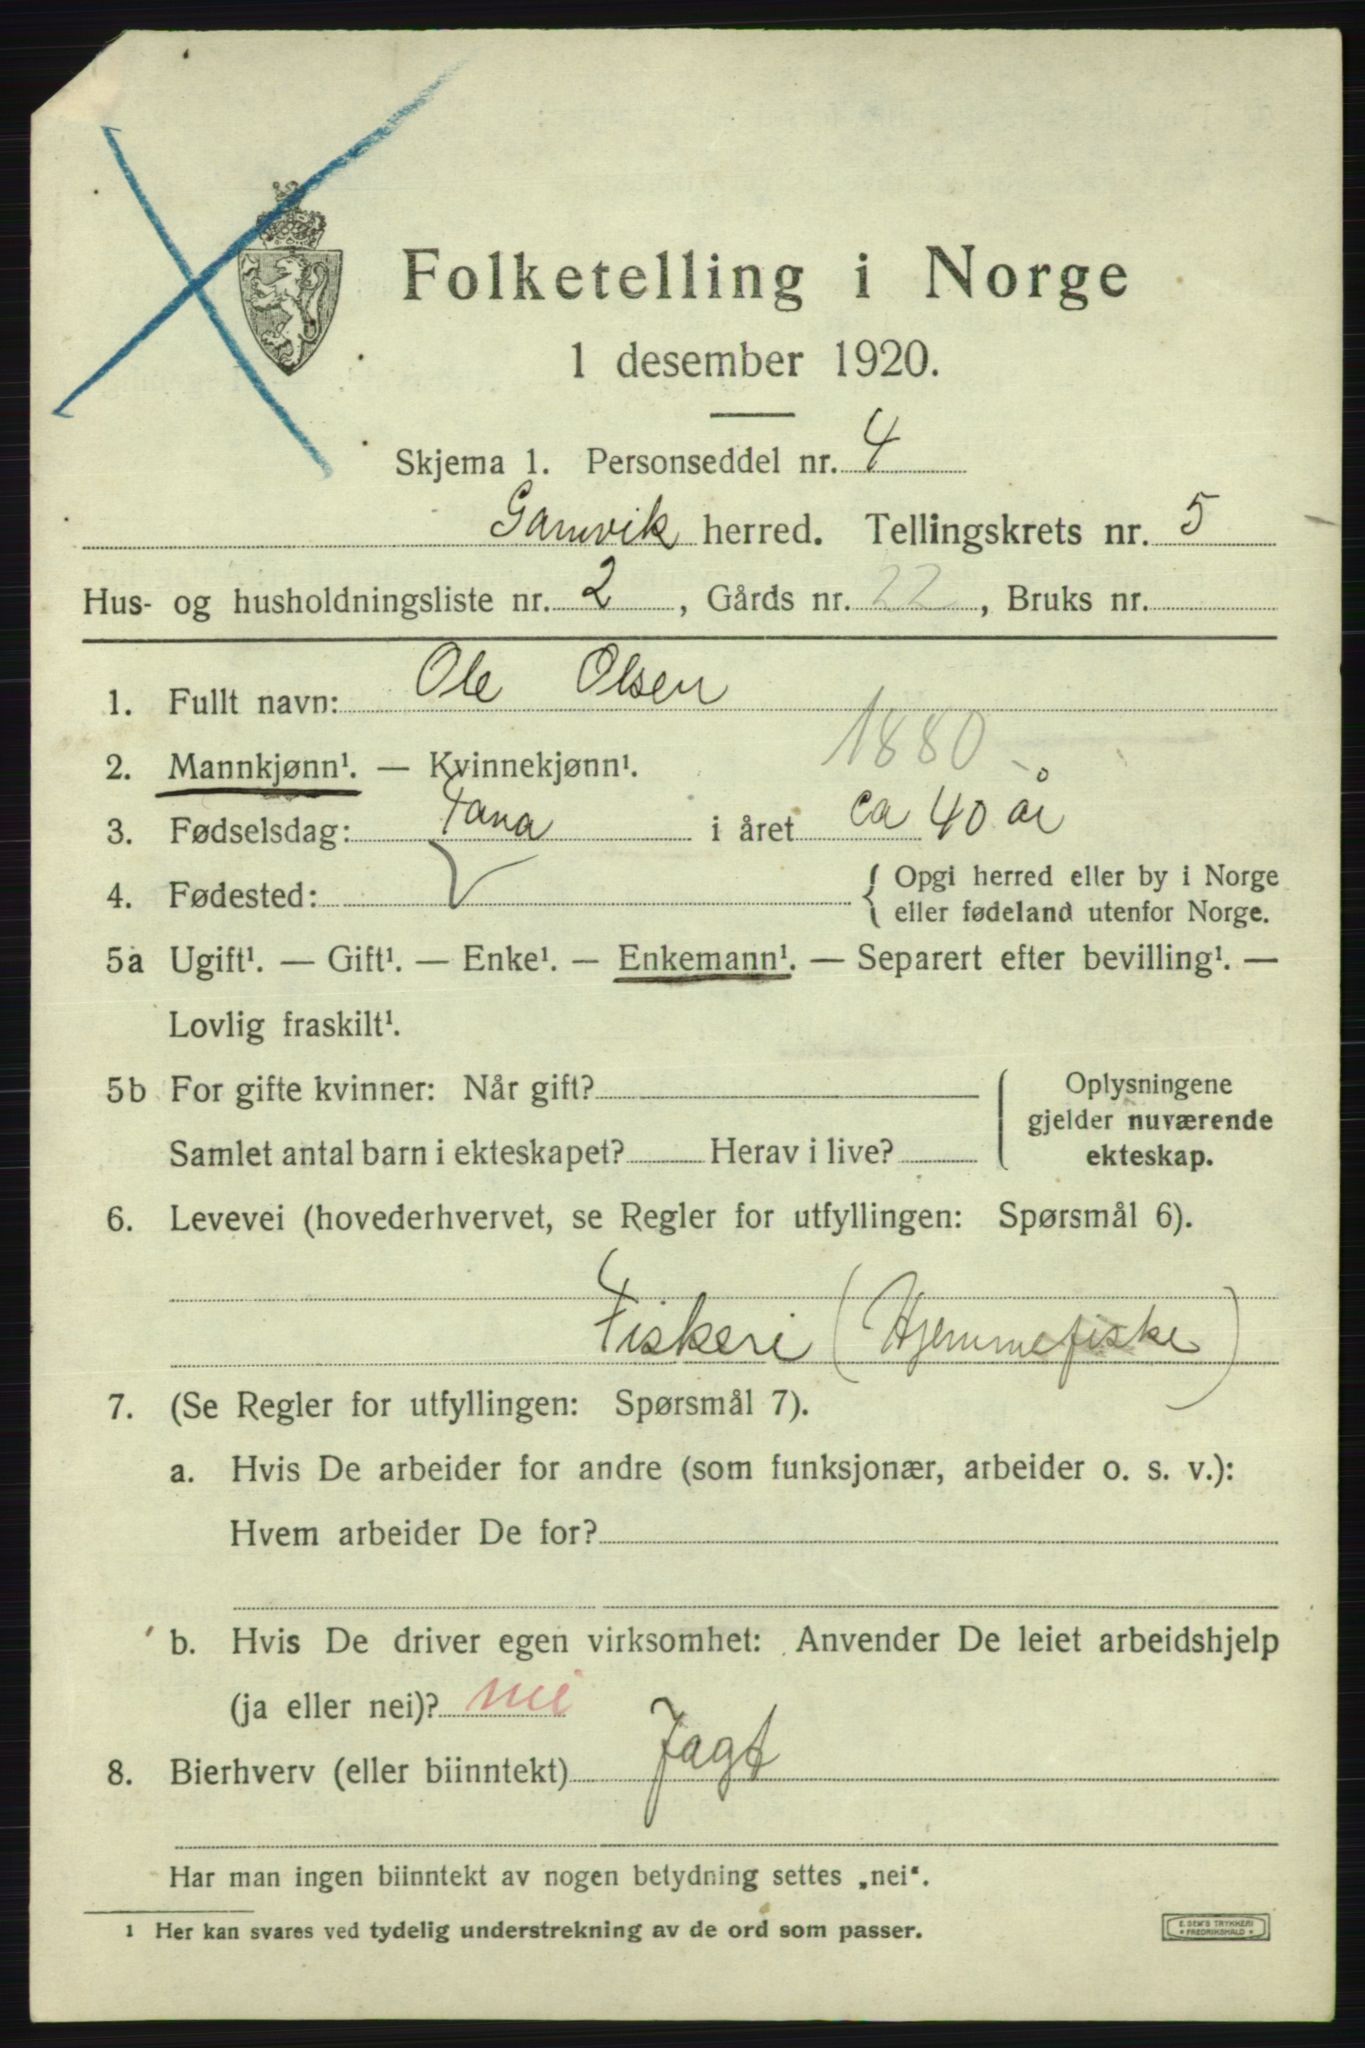 Folketelling i Norge
1 desember 1920.
Skjema 1. Personseddel nr. 4
Gamvik herred. Tellingskrets nr. 5
Hus- og husholdningsliste nr. 2, Gårds nr. 22, Bruks nr.
1. Fullt navn: Ole Olsen
1880
2. Mannkjønn¹. — Kvinnekjønn¹.
3. Fødselsdag: Tana i året ca 40 år
4. Fødested: { Opgi herred eller by i Norge
eller fødeland utenfor Norge.
5a Ugift¹. — Gift¹. — Enke¹. — Enkemann¹. — Separert efter bevilling¹. —
Lovlig fraskilt¹.
5b For gifte kvinner: Når gift?
Samlet antal barn i ekteskapet? Herav i live?
Oplysningene
gjelder nuværende
ekteskap.
6. Levevei (hovederhvervet, se Regler for utfyllingen: Spørsmål 6).
Fiskeri (Hjemmefiske)
7. (Se Regler for utfyllingen: Spørsmål 7).
a. Hvis De arbeider for andre (som funksjonær, arbeider o. s. v.):
Hvem arbeider De for?
b. Hvis De driver egen virksomhet: Anvender De leiet arbeidshjelp
(ja eller nei)? nei
8. Bierhverv (eller biinntekt) Jagt
Har man ingen biinntekt av nogen betydning settes „nei“.
1 Her kan svares ved tydelig understrekning av de ord som passer.
E. SEM'S TRYKKERI
* FREDRIKSHALD *